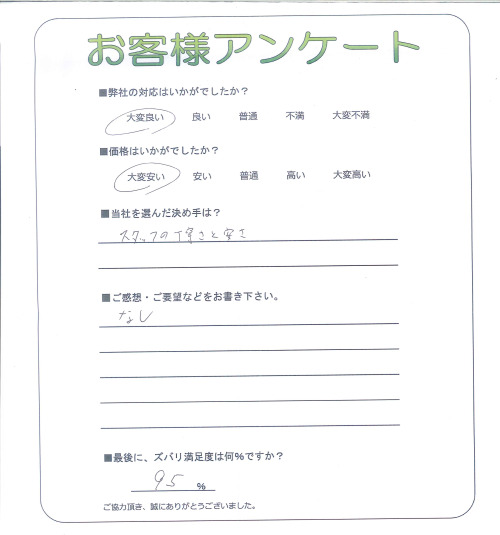 お客様アンケート
■弊社の対応はいかがでしたか？
大変良い 良い 普通 不満 大変不満
■価格はいかがでしたか？
大変安い 安い 普通 高い 大変高い
■当社を選んだ決め手は？
スタッフの丁寧さと安さ
■ご感想・ご要望などをお書き下さい。
なし
■最後に、ズバリ満足度は何%ですか？
95 %
ご協力頂き、誠にありがとうございました。